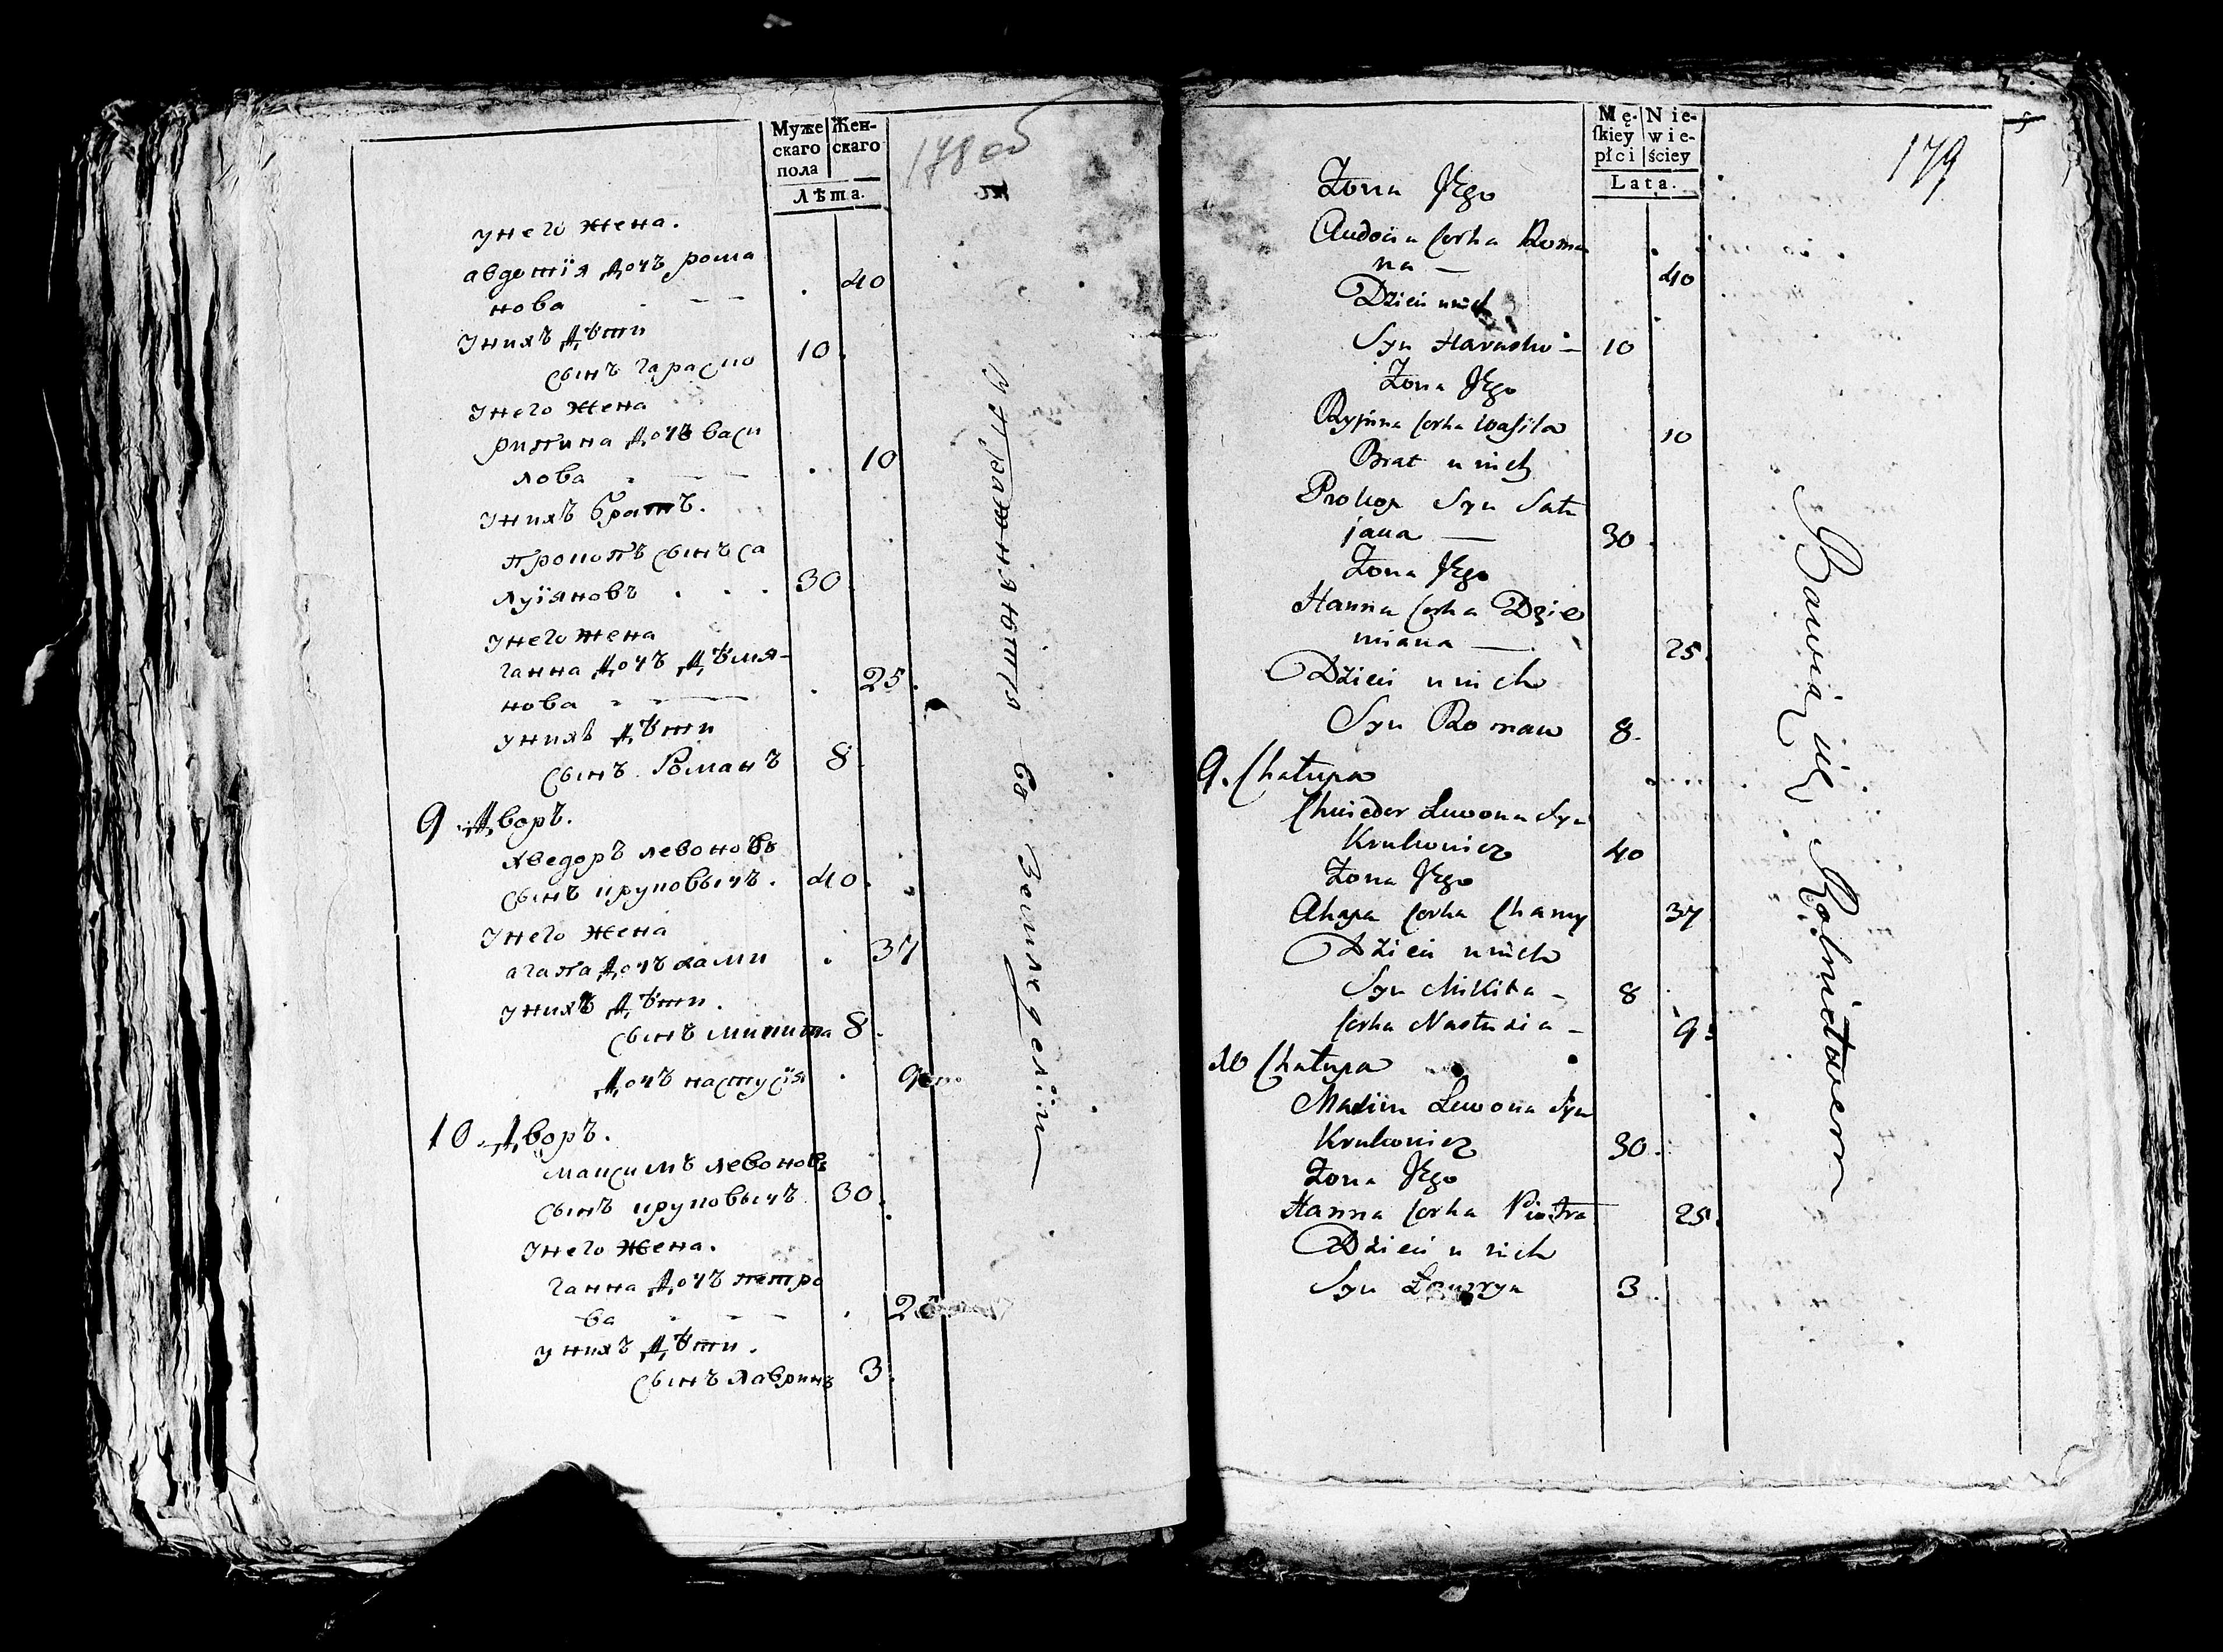 Муже Жен-
скаго скаго
пола
Лѣта.
178 об
унего жена.
авдотія дочъ рома
нова 40
унихъ дѣти
сынъ гараско 10
унего жена
рипина дочъ васи
лова 10
унихъ братъ.
прокопъ сынъ са
луіяновъ 30
унего жена
ганна дочъ дѣмя-
нова 25
унихъ дѣти
сынъ Романъ 8
9 дворъ.
хведоръ левоновъ
сынъ круковычъ. 40
унего жена
агапа дочъ хами 37
унихъ дѣти.
сынъ микита 8
дочъ настусія 9
10 дворъ.
максимъ левоновъ
сынъ круковычъ 30
унего жена.
ганна дочъ петро
ва 25
унихъ дѣти.
сынъ лавринъ 3
упражняются въ земледеліи
Mę- Nie-
skiey wie-
płci ściey
Lata.
179
Żona Jego
Audocia corka Roma
na — 40
Dzieci u nich
Syn Harasko — 10
Żona Jego
Rypina corka Wasila 10
Brat u nich
Prokop Syn Sału
jana — 30
Żona Jego
Hanna corka Dzie
miana — 25
Dzieci u nich
Syn Roman 8
9. Chałupa
Chwiedor Lewona Syn
Krukowicz 40
Żona Jego
Ahapa corka Chamy 37
Dzieci u nich
Syn Mikita — 8
Corka Nastusia — 9
10 Chałupa
Maxim Lewona Syn
Krukowicz 30
Żona Jego
Hanna corka Piotra 25
Dzieci u nich
Syn Ławryn 3
Bawią się Rolnictwem